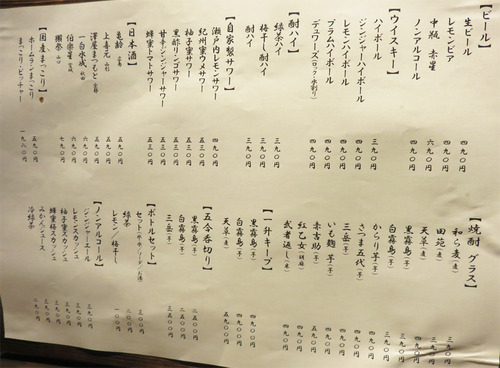 【ビール】
生ビール 四九〇円
レモンビア 四九〇円
中瓶 赤星 六九〇円
ノンアルコール 四九〇円
【ウイスキー】
ハイボール 三九〇円
ジンジャーハイボール 四九〇円
レモンハイボール 四九〇円
プラムハイボール 四九〇円
デュワーズ(ロック・水割り) 四九〇円
【酎ハイ】
緑茶ハイ 三九〇円
梅干し酎ハイ 三九〇円
酎ハイ 三九〇円
【自家製サワー】
瀬戸内レモンサワー 四九〇円
紀州蜜ウメサワー 五三〇円
柚子蜜サワー 五三〇円
黒酢リンゴサワー 五三〇円
甘辛ジンジャーサワー 五三〇円
蜂蜜トマトサワー 五三〇円
【日本酒】
亀齢 広島 五九〇円
上喜元 山形 五九〇円
澤屋まつもと 京都 六九〇円
一白水成 秋田
伯楽星 宮城
獺祭 山口 七九〇円
【国産まっこり】
ホームランまっこり 五九〇円
まっこり・ピッチャー 一九八〇円
【焼酎 グラス】
和ら麦(麦) 三九〇円
田苑(麦) 三九〇円
天草(麦) 四九〇円
黒霧島(芋) 三九〇円
白霧島(芋) 三九〇円
からり芋(芋) 三九〇円
さつま五代(芋) 四九〇円
いも麹 芋(芋) 四九〇円
三岳(芋) 四九〇円
赤吉助(芋) 五九〇円
紅乙女(胡麻) 四九〇円
武者返し(米) 四九〇円
【一升キープ】
黒霧島(芋)
白霧島(芋)
天草(麦)
【五合呑切り】
黒霧島(芋)
白霧島(芋)
三岳(芋)
【ボトルセット】
緑茶 二〇〇円
レモン/梅干し 一〇〇円
【ノンアルコール】
ジンジャーエール 三九〇円
レモンスカッシュ 三九〇円
柚子蜜スカッシュ
蜂蜜梅スカッシュ
みかんジュース
冷緑茶 二九〇円